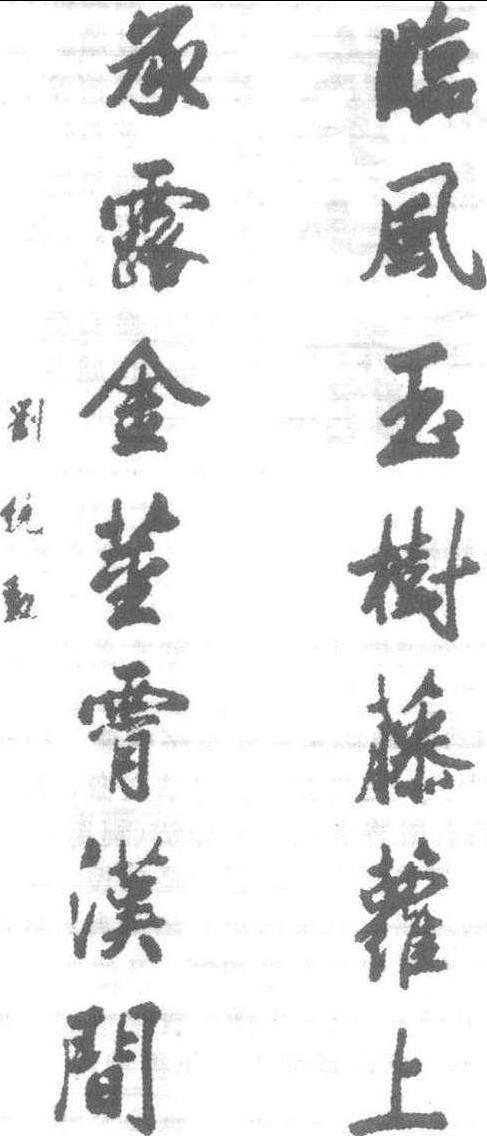 臨風玉樹藤蘿上
承露金莖霄漢間
劉統勳